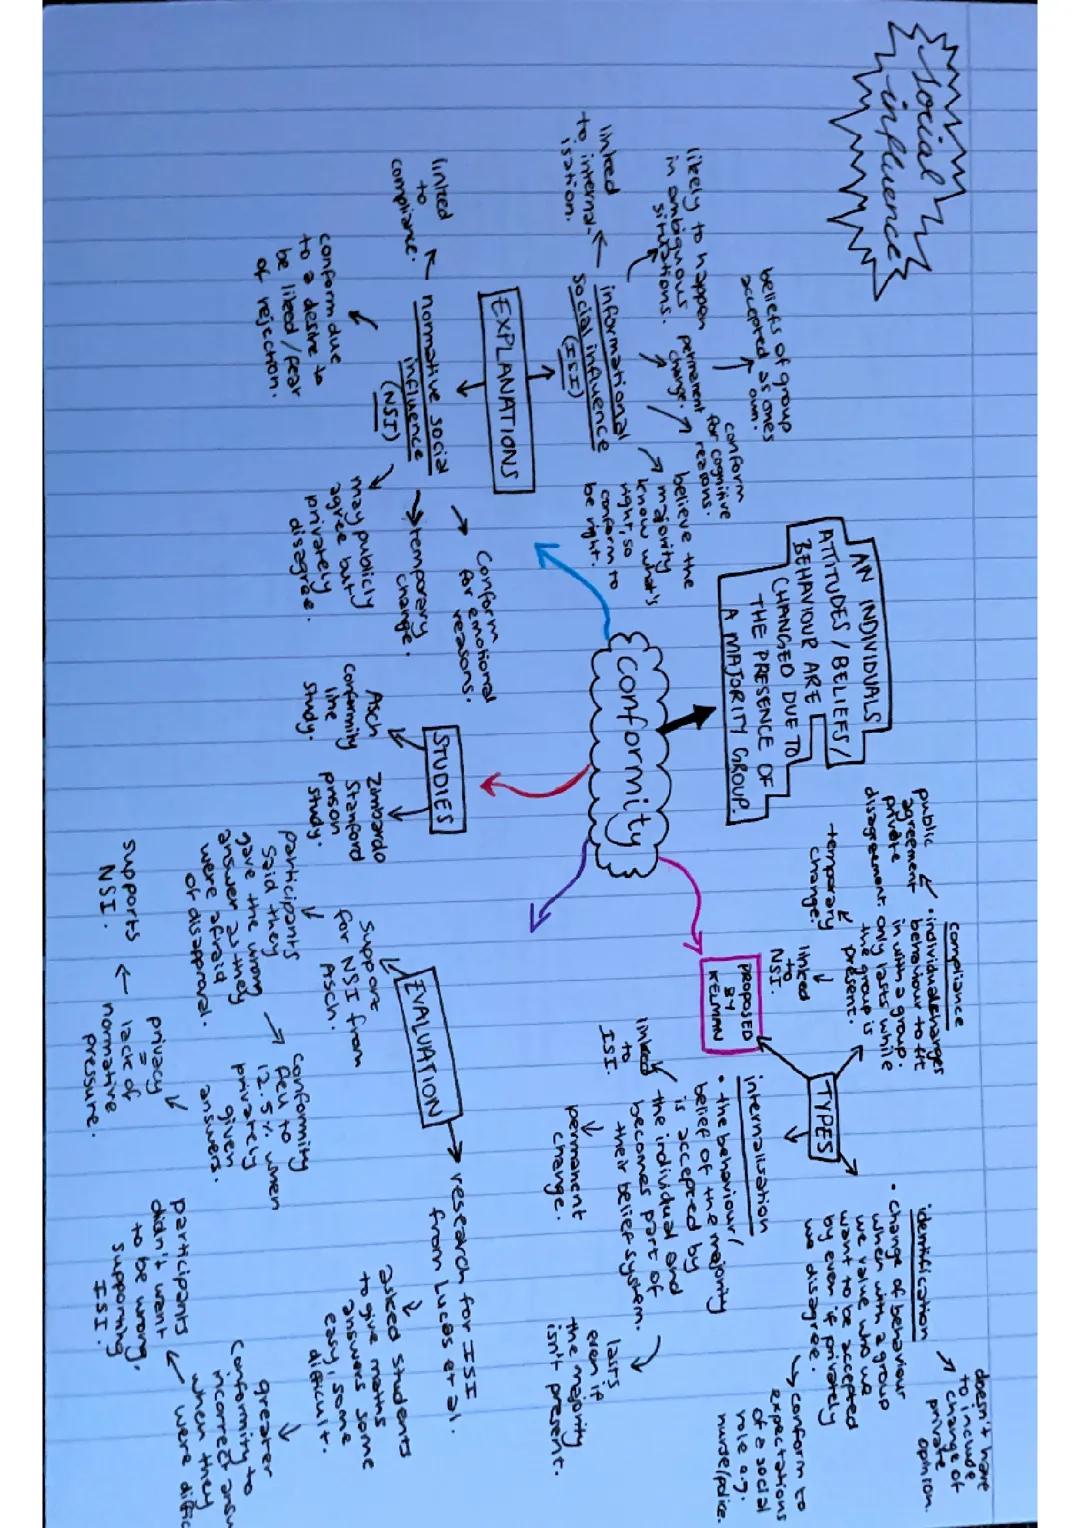 Social
influence
conformity
AN INDIVIDUALS
ATTITUDES / BELIEFS /
BEHAVIOUR ARE
CHANGED DUE TO
THE PRESENCE OF
A MAJORITY GROUP.
EXPLANATIONS
informational
social influence
(ISI)
linked
to internal-
isation.
likely to happen
in ambiguous
situations.
permanent
change.
beliefs of group
accepted as ones
own.
conform
for cognitive
reasons.
believe the
majority
know what's
right, so
conform to
be right.
normative social
influence
(NSI)
linked
to
compliance.
conform due
to a desire to
be liked / fear
of rejection.
may publicly
agree but
privately
disagree.
temporary
change.
Conform
for emotional
reasons.
STUDIES
Asch
conformity
line
study.
Zimbardo
Stanford
prison
study.
TYPES
PROPOSED
BY
KELMAN
compliance
• individual changes
behaviour to fit
in with a group.
only lasts while
the group is
present.
public
agreement
private
disagreement
temporary
change.
linked
to
NSI.
internalisation
• the behaviour/
belief of the majority
is accepted by
the individual and
becomes part of
their belief system.
linked
to
ISI.
permanent
change.
lasts
even if
the majority
isn't present.
identification
• change of behaviour
when with a group
we value who we
want to be accepted
by even if privately
we disagree.
doesn't have
to include
change of
private
opinion.
conform to
expectations
of a social
role e.g.
nurse/police.
EVALUATION
Support
for NSI from
Asch.
participants
said they
gave the wrong
answer as they
were afraid
of disapproval.
conformity
fell to
12.5% when
privately
given
answers.
privacy
=
lack of
normative
pressure.
supports
NSI.
research for ISI
from Lucas et al.
asked students
to give maths
answers some
easy, some
difficult.
greater
conformity to
incorrect answ
when they
were diffic
participants
didn't want
to be wrong,
supporting
ISI.